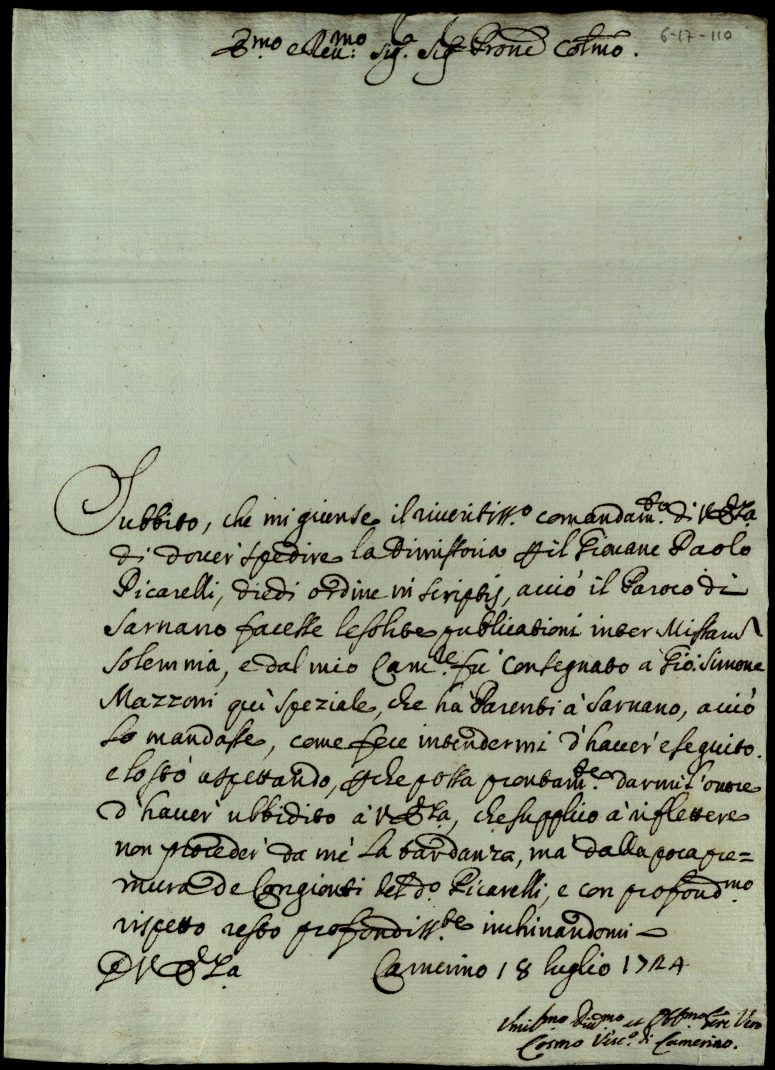 Emo e Reu:mo Sig.r Sig.r Prone Colmo. 6-17-110
Subbito, che mi giunse il riueritiss.o comandam.to di V. Emza
di douer' spedire la Dimissoria p il Giouane Paolo
Picarelli, diedi ordine in scriptis, acciò il Paroco di
Sarnano facesse le solite publicationi inter Missarum
solemnia, e dal mio Canc.le fù consegnato a Gio: Simone
Mazzoni quì speziale, che hà Parenti à Sarnano, acciò
Lo mandasse, come fece intendermi d'hauer' eseguito.
e lo stò aspettando, pche possa prontam.te darmi l'onore
d'hauer' ubbidito à V. Emza, che supplico à riflettere
non proceder' da mè La tardanza, mà dalla poca pre=
mura de Congionti del d.o Picarelli, e con profond.mo
rispetto resto profondiss.te inchinandomi
D V. Emza Camerino 18 luglio 1724
Vmil.mo Diu.mo et Obb.mo Sere Vero
Cosmo Vesc.o di Camerino.